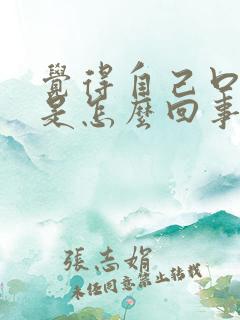 覺得自己口
是怎麼回事
張志娟
未任同意禁止转载